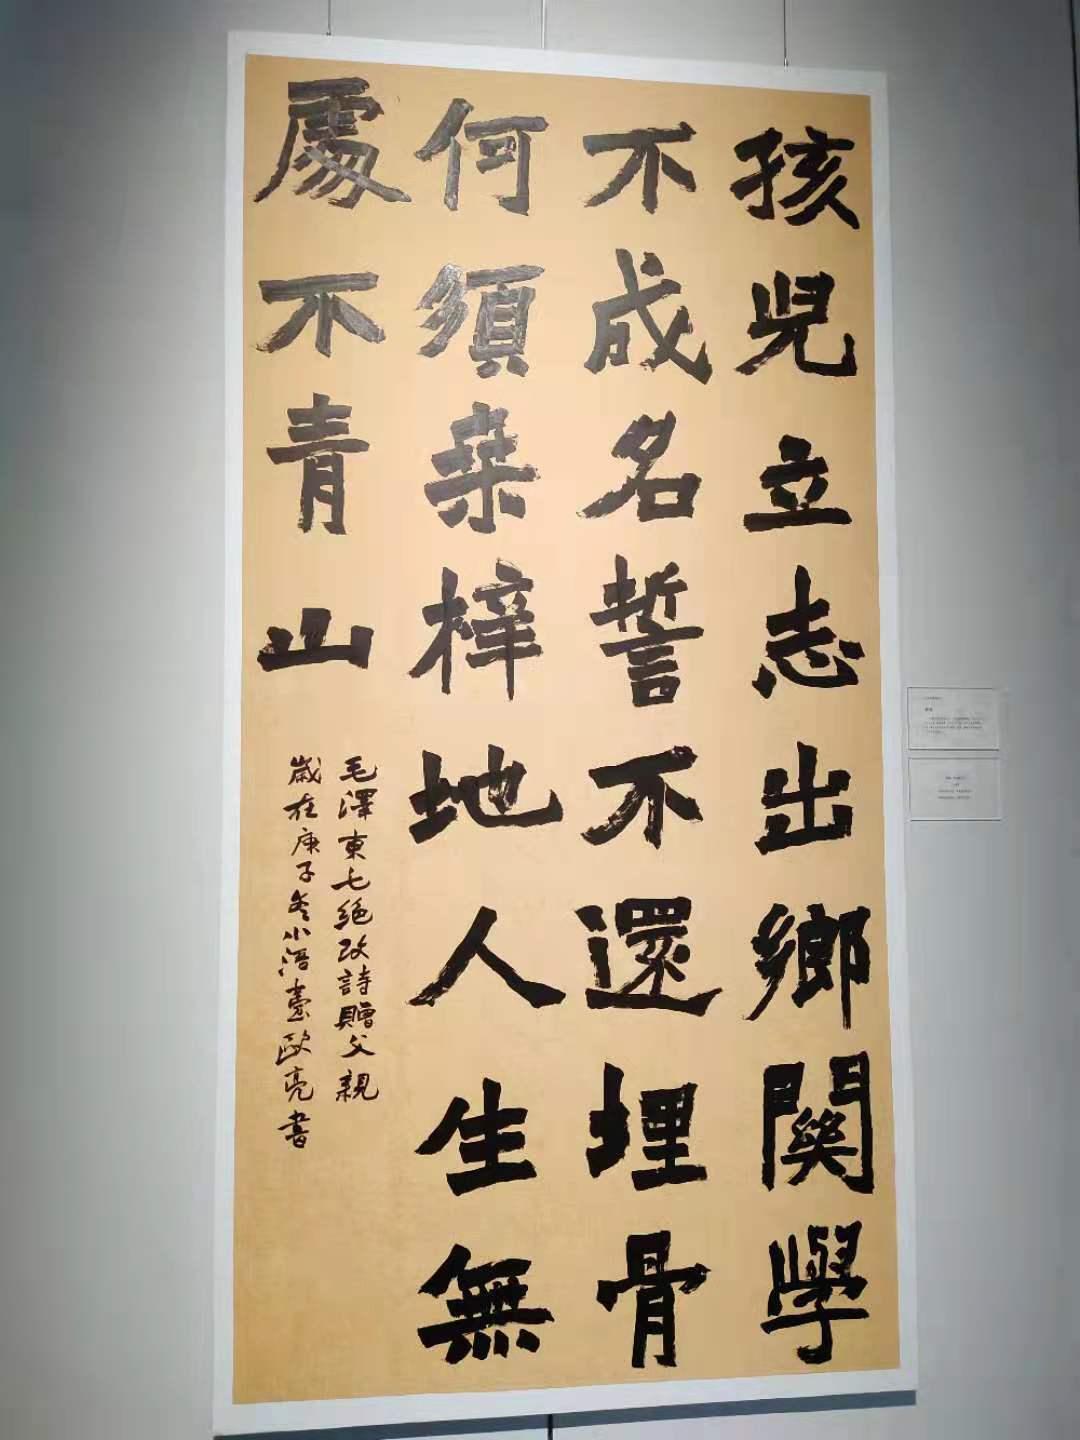 孩兒立志出鄉關學
不成名誓不還埋骨
何須桒梓地人生無
處不青山
毛澤東七絕改詩贈父親
歲在庚子冬小浯臺歐亮書